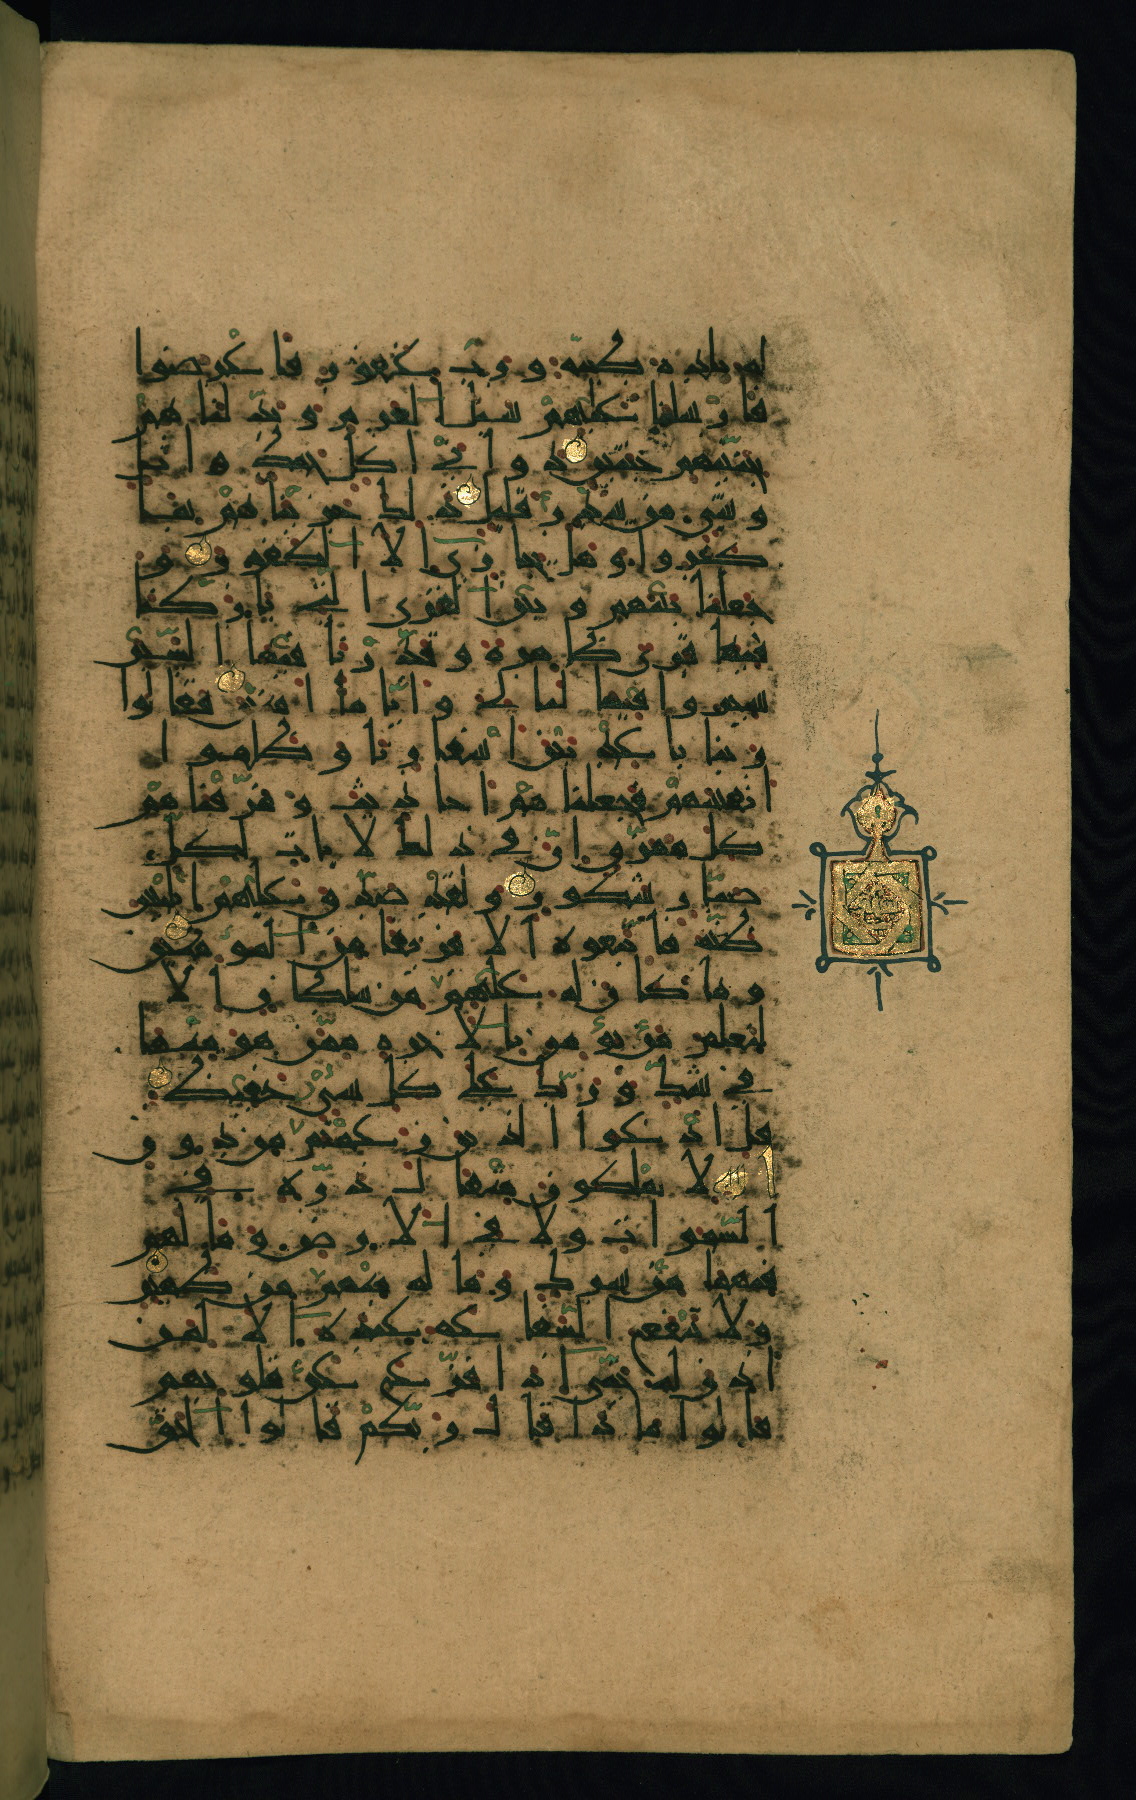 له بلدة طيبة ورب غفور فاعرضوا
فارسلنا عليهم سيل العرم وبدلناهم
بجنتيهم جنتين ذواتي اكل خمط واثل
وشي من سدر قليل ذلك جزيناهم بما
كفروا وهل يجازى الا الكفور و
جعلنا بينهم وبين القرى التي باركنا
فيها قرى ظاهرة وقدرنا فيها السير
سيروا فيها ليالي واياما امنين فقالوا
ربنا باعد بين اسفارنا وظلموا ا
نفسهم فجعلناهم احاديث ومزقناهم
كل ممزق ان في ذلك لايات لكل
صبار شكور ولقد صدق عليهم ابليس
ظنه فاتبعوه الا فريقا من المومنين
وما كان له عليهم من سلطان الا
لنعلم من يومن بالاخرة ممن هو منها
في شك وربك على كل شي حفيظ
قل ادعوا الذين زعمتم من دون
الله لا يملكون مثقال ذرة في
السموات ولا في الارض وما لهم
فيهما من شرك وما له منهم من ظهير
ولا تنفع الشفاعة عنده الا لمن
اذن له حتى اذا فزع عن قلوبهم
قالوا ماذا قال ربكم قالوا الحق